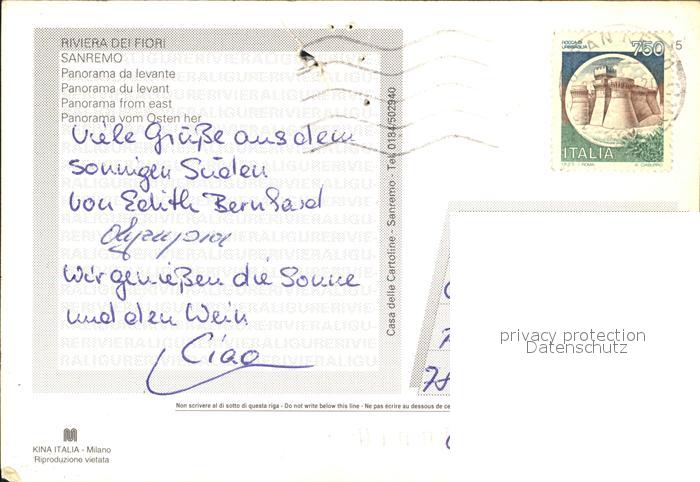 RIVIERA DEI FIORI
SANREMO
Panorama da levante
Panorama du levant
Panorama from east
Panorama vom Osten her
Viele Grüße aus dem
sonnigen Süden
von Edith Bernhard
Wir genießen die Sonne
und den Wein
Ciao
Casa delle Cartoline - Sanremo - Tel. 0184/502940
750
ITALIA
privacy protection
Datenschutz
Non scrivere al di sotto di questa riga - Do not write below this line - Ne pas écrire au dessous de ce
KINA ITALIA - Milano
Riproduzione vietata